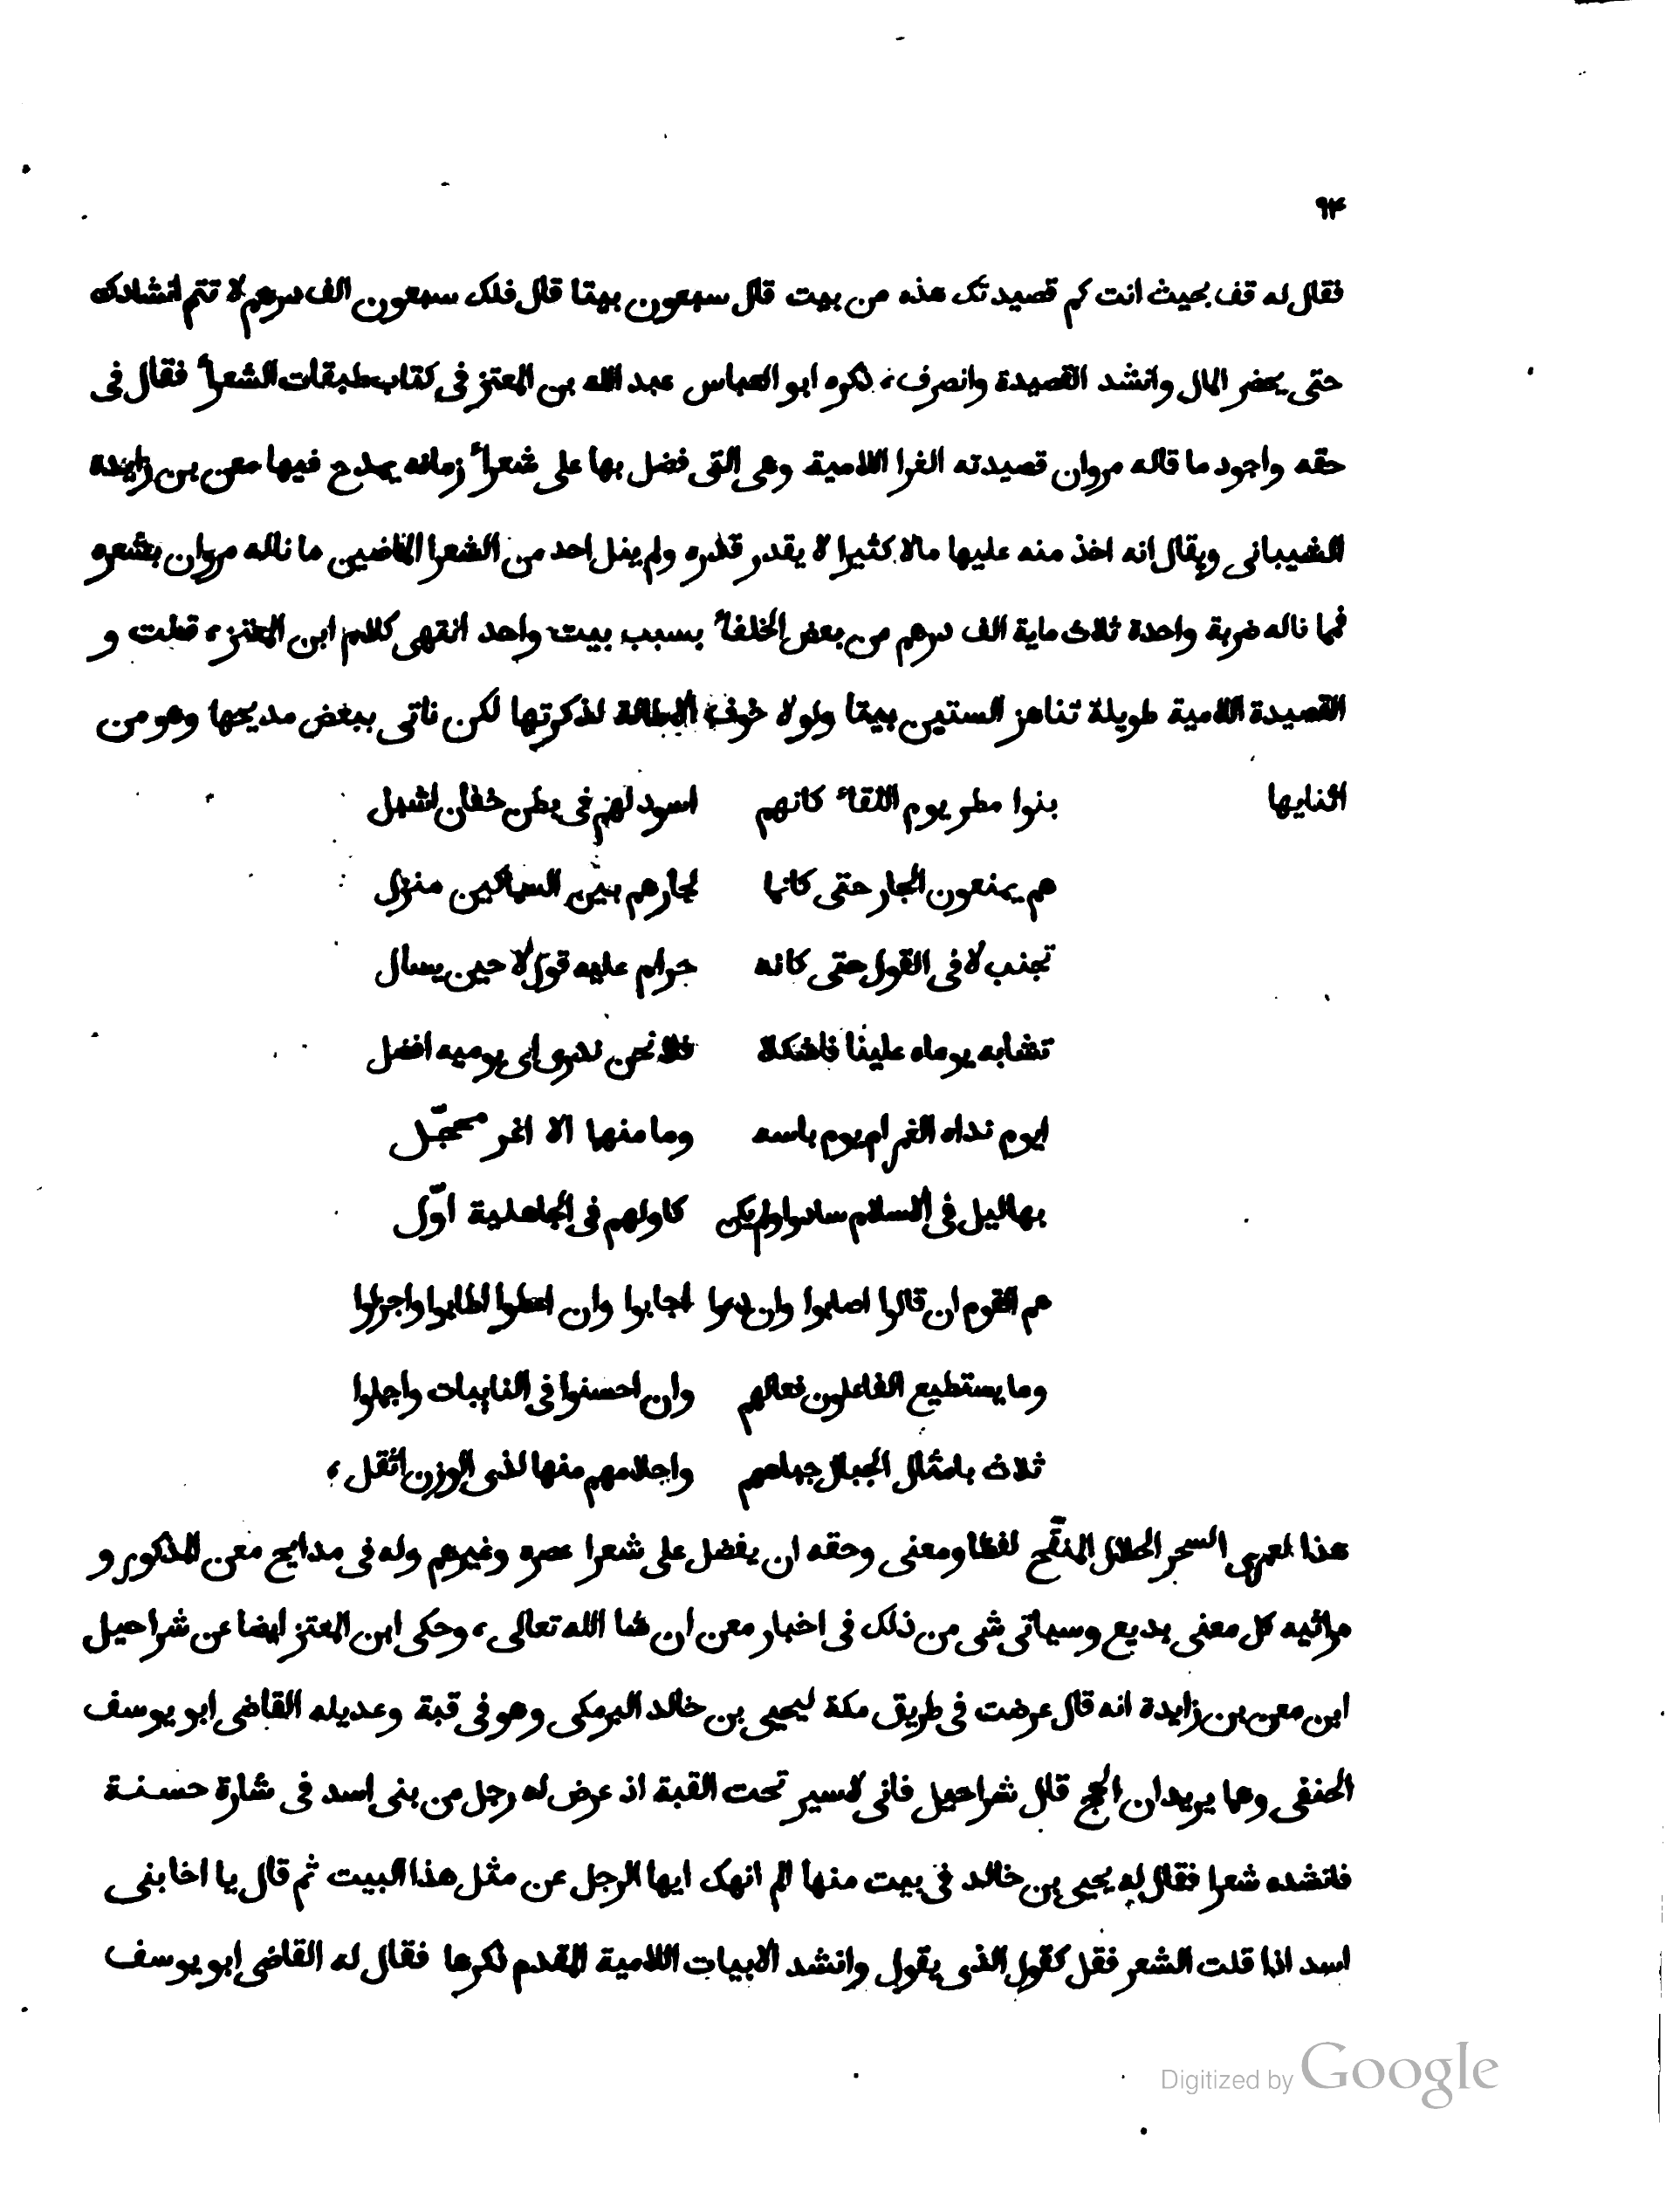 ٩٤
فقال له قف بحيث انت كم قصيدتك هذه من بيت قال سبعون بيتا قال فلك سبعون الف درهم لا تتم انشادك
حتى يحضر المال وانشد القصيدة وانصرف، ذكره ابو العباس عبد الله بن المعتز فى كتاب طبقات الشعرأ فقال فى
حقه واجود ما قاله مروان قصيدته الغرا اللامية وهى التى فضل بها على شعرأ زمانه يمدح فيها معن بن زايدة
الشيبانى ويقال انه اخذ منه عليها مالا كثيرا لا يقدر قدره ولم ينل احد من الشعرا الماضين ما ناله مروان بشعره
فما ناله ضربة واحدة ثلاث ماية الف درهم من بعض الخلفأ بسبب بيت واحد انتهى كلام ابن المعتز، قلت و
القصيدة اللامية طويلة تناهز الستين بيتا ولولا خوف الاطالة لذكرتها لكن ناتى ببعض مديحها وهو من
اثنايها بنوا مطر يوم اللقأ كانهم اسود لهم فى بطن خفان اشبل
هم يمنعون الجار حتى كانما لجارهم بين السماكين منزل
تجنب لا فى القول حتى كانه حرام عليه قول لا حين يسال
تشابه يوماه علينا فاشكلا فلا نحن ندرى اى يوميه افضل
ايوم نداه الغمر ام يوم باسه وما منهما الا اغر محجّل
بهاليل فى الاسلام سادوا ولم يكن كاولهم فى الجاهلية اوّل
هم القوم ان قالوا اصابوا وان دعوا اجابوا وان اعطوا اطابوا واجزلوا
وما يستطيع الفاعلون فعالهم وان احسنوا فى النايبات واجملوا
ثلاث بامثال الجبال جباهم واحلامهم منها لذى الوزن اثقل،
هذا لعمرى السحر الحلال المنقّح لفظا ومعنى وحقه ان يفضل على شعرا عصره وغيرهم وله فى مدايح معن المذكور و
مراثيه كل معنى بديع وسياتى شى من ذلك فى اخبار معن ان شا الله تعالى، وحكى ابن المعتز ايضا عن شراحيل
ابن معن بن زايدة انه قال عرضت فى طريق مكة ليحيى بن خالد البرمكى وهو فى قبة وعديله القاضى ابو يوسف
الحنفى وهما يريدان الحج قال شراحيل فانى لاسير تحت القبة اذ عرض له رجل من بنى اسد فى شارة حسنة
فانشده شعرا فقال له يحيى بن خالد فى بيت منها الم انهك ايها الرجل عن مثل هذا البيت ثم قال يا اخا بنى
اسد اذا قلت الشعر فقل كقول الذى يقول وانشد الابيات اللامية المقدم ذكرها فقال له القاضى ابو يوسف
Digitized by Google